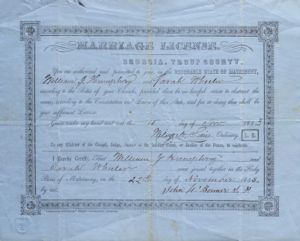 MARRIAGE LICENSE.
GEORGIA, TROUP COUNTY.
You are authorized and permitted to join in the HONORABLE STATE OF MATRIMONY,
William J. and Sarah Wheeler
according to the Rites of your Church, provided there be no lawful cause to obstruct the
same, according to the Constitution and Laws of this State, and for so doing this shall be
your sufficient License.
Given under my hand and seal, this 15 day of
Ordinary. L. S.
To any Minister of the Gospel, Judge, Justice of the Inferior Court, or Justice of the Peace, to celebrate.
I Hereby Certify, That William J. and
Sarah Wheeler were joined together in the Holy
Bans of Matrimony, on the 22nd day of November
by me. John W.